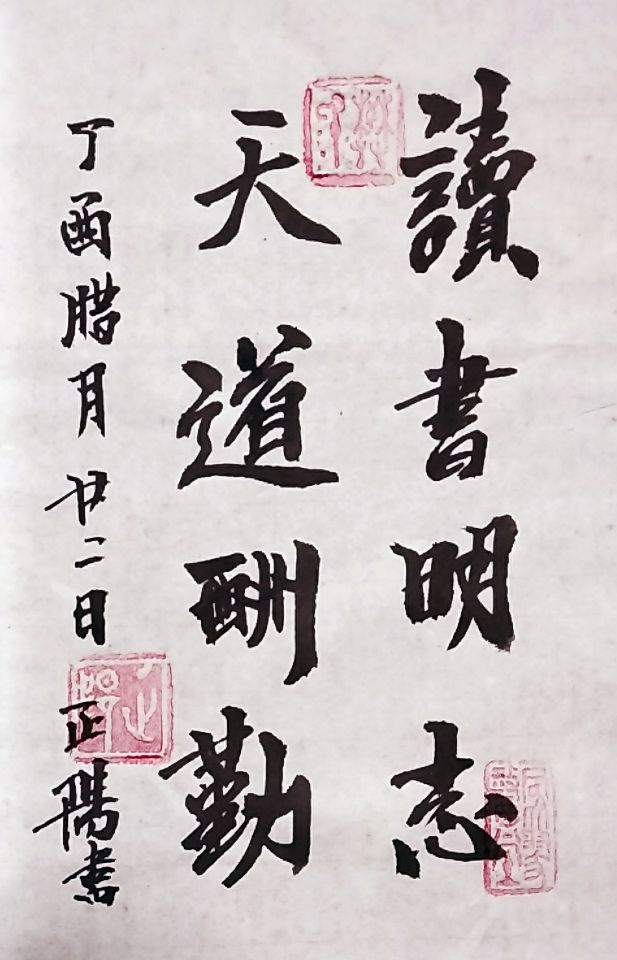 讀書明志
天道酬勤
丁酉腊月廿二日 正陽書